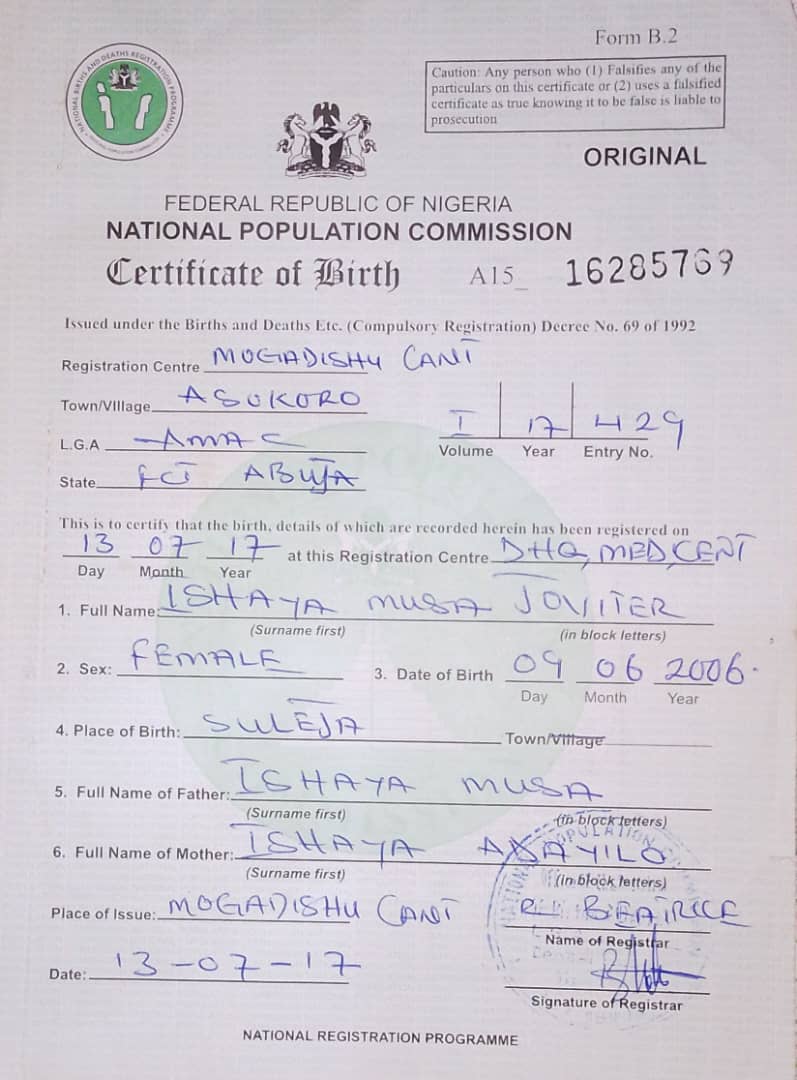 Form B.2
NATIONAL BIRTHS AND DEATHS REGISTRATION PROGRAMME
Caution: Any person who (1) Falsifies any of the
particulars on this certificate or (2) uses a falsified
certificate as true knowing it to be false is liable to
prosecution
ORIGINAL
FEDERAL REPUBLIC OF NIGERIA
NATIONAL POPULATION COMMISSION
Certificate of Birth A15_ 16285769
Issued under the Births and Deaths Etc. (Compulsory Registration) Decree No. 69 of 1992
Registration Centre MOGADISHU CANT
Town/Village ASOKORO
L.G.A AMAC
I 17 429
Volume Year Entry No.
State FCT ABUJA
This is to certify that the birth, details of which are recorded herein has been registered on
13 07 17 at this Registration Centre DHQ, MED, CENT
Day Month Year
1. Full Name: ISHAYA MUSA JOVITER
(Surname first) (in block letters)
2. Sex: FEMALE 3. Date of Birth 09 06 2006.
Day Month Year
4. Place of Birth: SULEJA Town/Village
5. Full Name of Father: ISHAYA MUSA
(Surname first) (in block letters)
6. Full Name of Mother: ISHAYA
(Surname first) (in block letters)
Place of Issue: MOGADISHU CANT BEATRICE
Name of Registrar
Date: 13-07-17
Signature of Registrar
NATIONAL REGISTRATION PROGRAMME